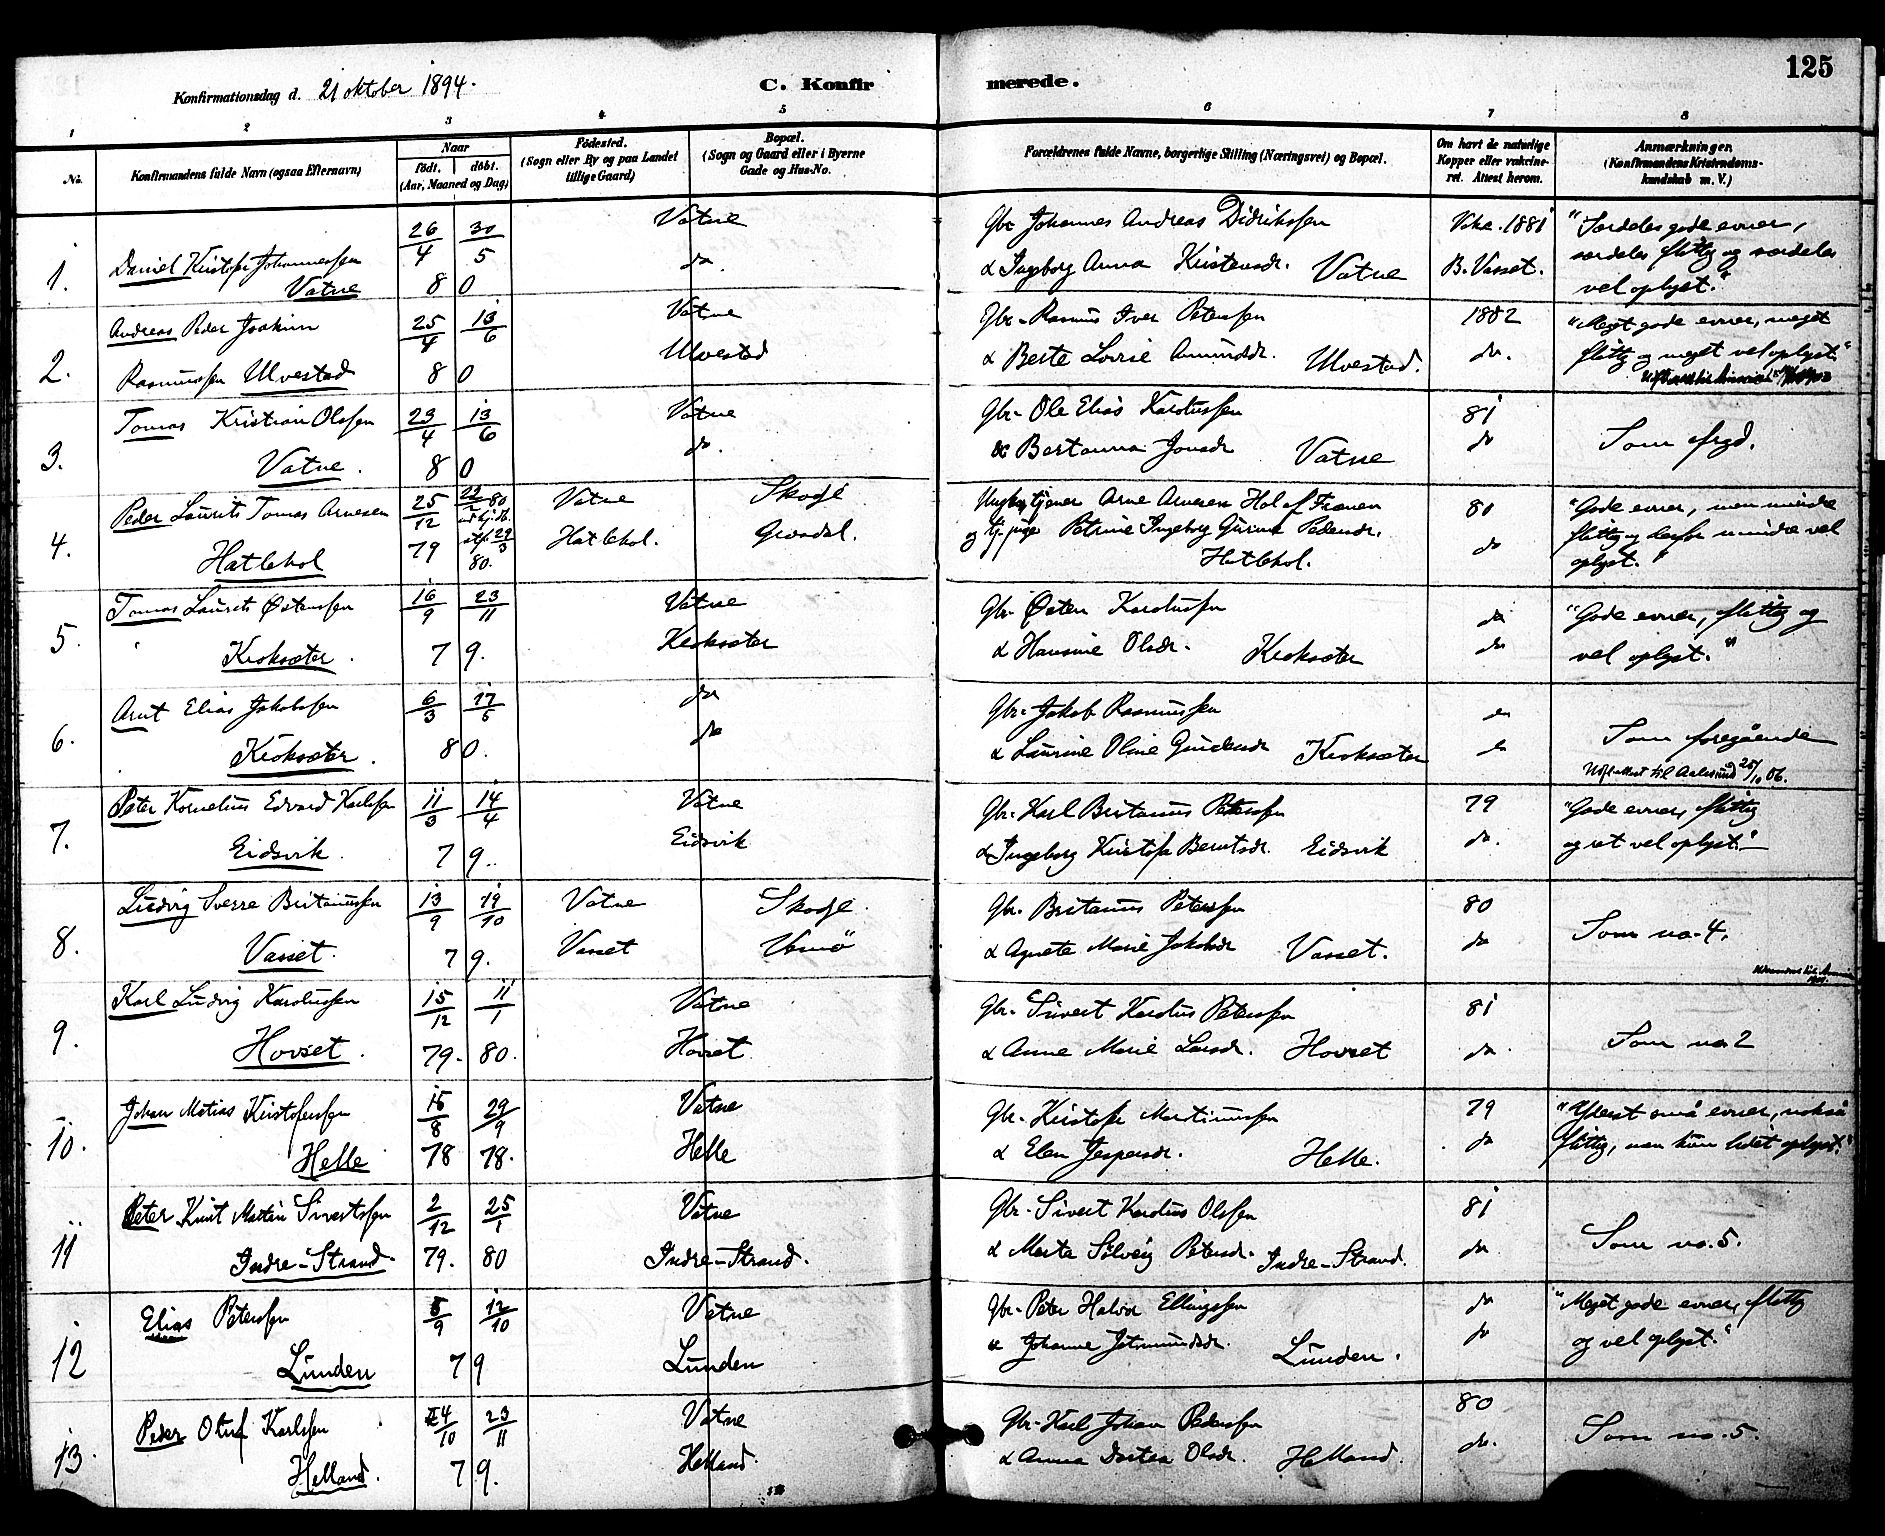 125
Konfirmationsdag d. 21 oktober 1894.
C. Konfirmerede.
1 2 3 4 5 6 7 8
No.
Konfirmandens fulde Navn (ogsaa Efternavn)
Naar
födt. döbt.
(Aar, Maaned og Dag)
Födested.
(Sogn eller By og paa Landet tillige Gaard)
Bopæl.
(Sogn og Gaard eller i Byerne Gade og Hus-No.
Forældrenes fulde Navne, borgerlige Stilling (Næringsvei) og Bopæl.
Om havt de naturlige Kopper eller vakcineret. Attest herom.
Anmærkninger.
(Konfirmandens Kristendomskundskab m. V.)
1. Daniel Kristofer Johannessen Vatne
26/4 30/5 80
Vatne do.
Gbr. Johannes Andreas Didrikssen
& Ingeborg Anna Kristensdr. Vatne
Vakc. 1881 B. Vasset.
"Særdeles gode evner, særdeles flittig og særdeles vel oplyst."
2. Andreas Peder Joakim Rasmussen Ulvestad
25/4 13/6 80
Vatne Ulvestad
Gbr. Rasmus Iver Peterssen
& Berte Lovise Amundsdr. Ulvestad.
1882 do.
"Meget gode evner, meget flittig og meget vel oplyst."
3. Tomas Kristian Olssen Vatne.
23/4 13/6 80
Vatne do.
Gbr. Ole Elias Karolussen
& Bertanna Jonsdr. Vatne
81 do
Som frgd.
4. Peder Laurits Tomas Arnesen Hatlehol
25/12 79 80 29/3 80.
Vatne Hatlehol.
Skodje Grøndal.
Ungkr. tjener Arne Arnesen Hol af Frænen
og tj. pige Petrine Ingeborg Gurine Pedersdr. Hatlehol.
80 do
"Gode evner, men mindre flittig og derfor mindre vel oplyst."
5. Tomas Laurits Østenssen Kroksæter.
16/9 23/11 79.
Vatne Kroksæter
Gbr. Østen Karolussen
& Hansine Olsdr. Kroksæter
do do
"Gode evner, flittig og vel oplyst."
6. Arnt Elias Jakobssen Kroksæter.
6/3 17/5 80.
do do
Gbr. Jakob Rasmussen
& Laurine Oline Gundersdr Kroksæter
do do
Som foregående
Udfl.attest til Aalesund 25/10 06.
7. Peter Kornelius Edvard Karlssen Eidsvik.
11/3 14/4 79.
Vatne Eidsvik
Gbr. Karl Bertanus Peterssen
& Ingeborg Kristofa Berntsdr. Eidsvik
79 do.
"Gode evner, flittig og ret vel oplyst."
8. Ludvig Sverre Britanussen Vasset.
13/9 19/10 79.
Vatne Vasset
Skodje.
Gbr. Britanus Peterssen
& Agnete Marie Jakobsdr Vasset.
80 do
Som no. 4.
9. Karl Ludvig Karolussen Hovset.
15/12 11/1 79. 80.
Vatne Hovset
Gbr. Sivert Karolus Peterssen
& Anne Marie Larsdr. Hovset
81 do.
Som no 2
10. Johan Matias Kristofersen Helle
15/8 29/9 78 78.
Vatne Helle
Gbr. Kristofer Martinussen
& Elen Jespersdr. Helle.
79 do
"Yderst små evner, nokså flittig, men kun lidet oplyst."
11 Peter Knut Martin Sivertssen Indre-Strand.
2/12 25/1 79. 80
Vatne Indre-Strand.
Gbr. Sivert Karolus Olssen
& Marta Sølveig Petersdr. Indre-Strand.
81 do.
Som no. 5.
12 Elias Peterssen Lunden
5/9 12/10 79
Vatne Lunden
Gbr. Peter Halvor Ellingssen
& Johanne Jetmundsdr. Lunden.
do do
"Meget gode evner, flittig og vel oplyst."
13. Peder Oluf Karlssen Helland.
24/10 23/11 79.
Vatne Helland.
Gbr. Karl Johan Pederssen
& Anna Dortea Olsdr. Helland.
80 do.
Som no. 5.